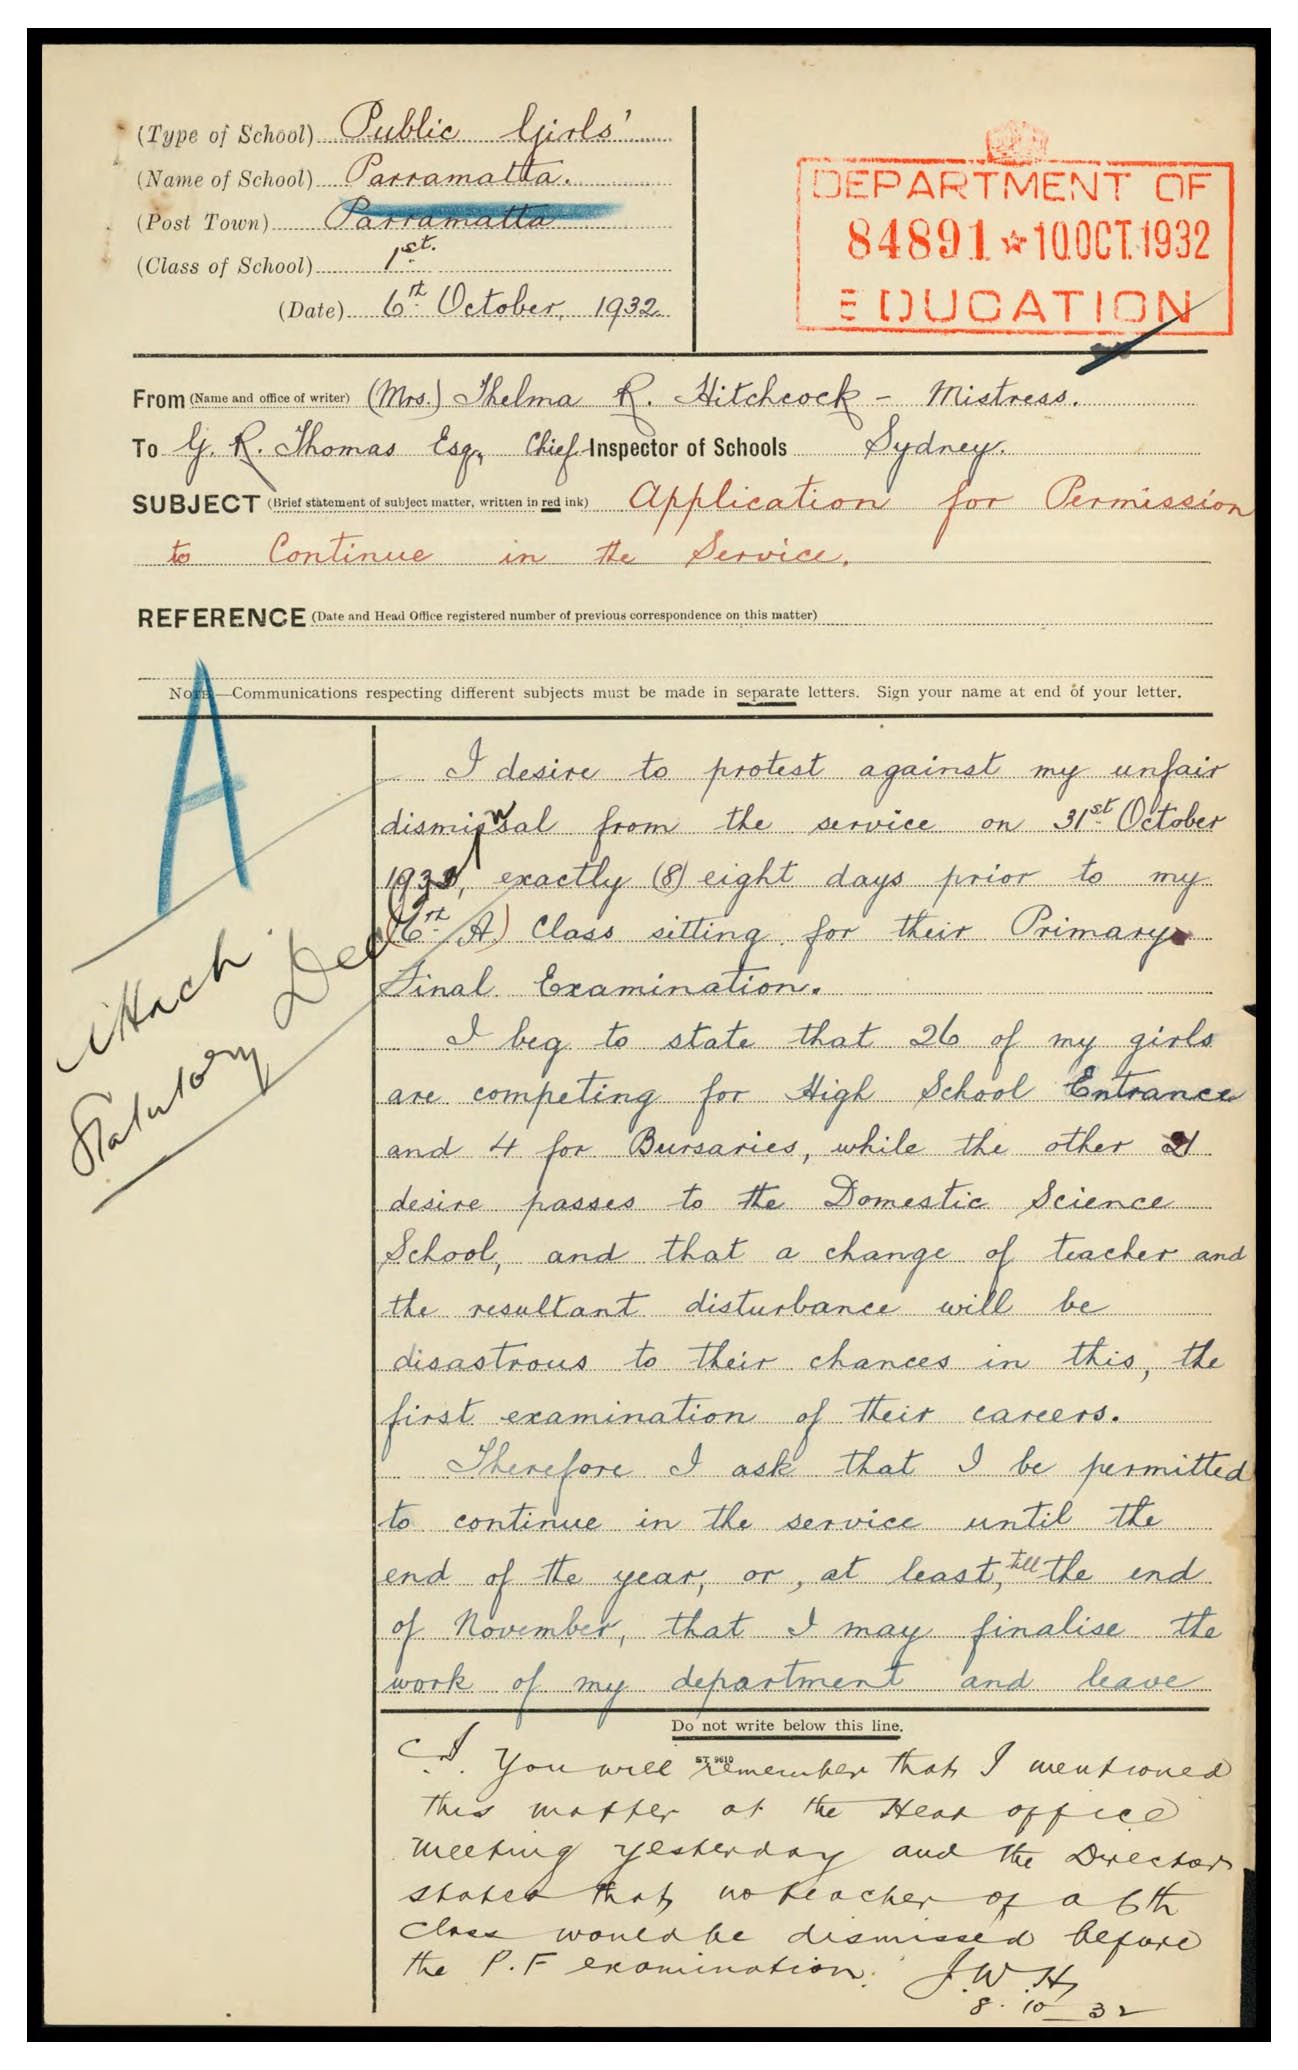 (Type of School) Public Girls'
(Name of School) Parramatta.
(Post Town) Parramatta
(Class of School) 1st.
(Date) 6th October, 1932.
DEPARTMENT OF
84891 ☆ 10 OCT. 1932
EDUCATION
From (Name and office of writer) (Mrs.) Thelma R. Hitchcock - Mistress.
To G. R. Thomas Esq., Chief Inspector of Schools Sydney.
SUBJECT (Brief statement of subject matter, written in red ink) Application for Permission
to Continue in the Service.
REFERENCE (Date and Head Office registered number of previous correspondence on this matter)
NOTE.—Communications respecting different subjects must be made in separate letters. Sign your name at end of your letter.
A
Attach
Statutory Dec
I desire to protest against my unfair
dismissal from the service on 31st October
1932, exactly (8) eight days prior to my
(6th A) Class sitting for their Primary
Final Examination.
I beg to state that 26 of my girls
are competing for High School Entrance
and 4 for Bursaries, while the other 21
desire passes to the Domestic Science
School, and that a change of teacher and
the resultant disturbance will be
disastrous to their chances in this, the
first examination of their careers.
Therefore I ask that I be permitted
to continue in the service until the
end of the year, or, at least, till the end
of November, that I may finalise the
work of my department and leave
Do not write below this line.
ST 9610
C.I. You will remember that I mentioned
this matter at the Head office
meeting yesterday and the Director
stated that no teacher of a 6th
Class would be dismissed before
the P.F examination. J.W.H.
8.10.32